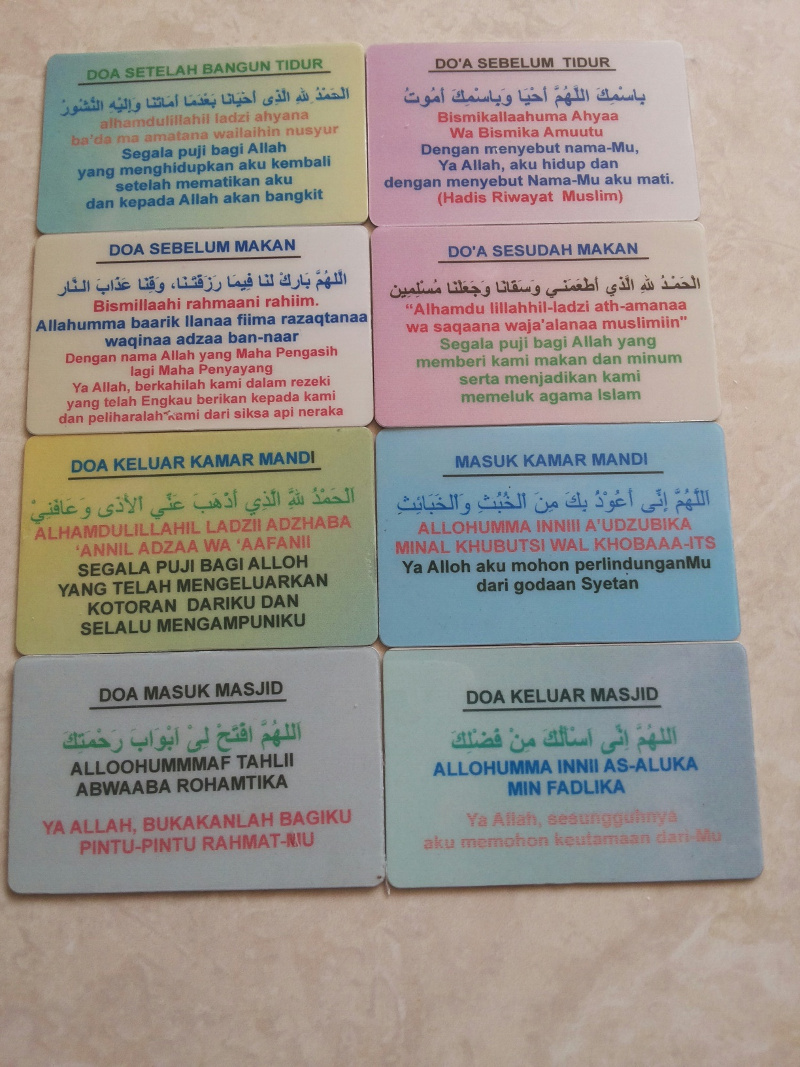 DOA SETELAH BANGUN TIDUR
الْحَمْدُ لِلّٰهِ الَّذِى أَحْيَانَا بَعْدَمَا أَمَاتَنَا وَإِلَيْهِ النُّشُوْرُ
alhamdulillahil ladzi ahyana
ba'da ma amatana wailaihin nusyur
Segala puji bagi Allah
yang menghidupkan aku kembali
setelah mematikan aku
dan kepada Allah akan bangkit
DO'A SEBELUM TIDUR
بِاسْمِكَ اللّٰهُمَّ أَحْيَا وَبِاسْمِكَ أَمُوتُ
Bismikallaahuma Ahyaa
Wa Bismika Amuutu
Dengan menyebut nama-Mu,
Ya Allah, aku hidup dan
dengan menyebut Nama-Mu aku mati.
(Hadis Riwayat Muslim)
DOA SEBELUM MAKAN
اَللّٰهُمَّ بَارِكْ لَنَا فِيمَا رَزَقْتَنَا، وَقِنَا عَذَابَ النَّارِ
Bismillaahi rahmaani rahiim.
Allahumma baarik llanaa fiima razaqtanaa
waqinaa adzaa ban-naar
Dengan nama Allah yang Maha Pengasih
lagi Maha Penyayang
Ya Allah, berkahilah kami dalam rezeki
yang telah Engkau berikan kepada kami
dan peliharalah kami dari siksa api neraka
DO'A SESUDAH MAKAN
الْحَمْدُ لِلّٰهِ الَّذِي أَطْعَمَنِي وَسَقَانَا وَجَعَلَنَا مُسْلِمِين
“Alhamdu lillahhil-ladzi ath-amanaa
wa saqaana waja'alanaa muslimiin"
Segala puji bagi Allah yang
memberi kami makan dan minum
serta menjadikan kami
memeluk agama Islam
DOA KELUAR KAMAR MANDI
اَلْحَمْدُ لِلّٰهِ الَّذِي أَذْهَبَ عَنِّي الْأَذَى وَعَافَنِيْ
ALHAMDULILLAHIL LADZII ADZHABA
‘ANNIL ADZAA WA ‘AAFANII
SEGALA PUJI BAGI ALLOH
YANG TELAH MENGELUARKAN
KOTORAN DARIKU DAN
SELALU MENGAMPUNIKU
MASUK KAMAR MANDI
اَللّٰهُمَّ إِنِّى أَعُوْذُ بِكَ مِنَ الْخُبُثِ وَالْخَبَائِثِ
ALLOHUMMA INNIII A'UDZUBIKA
MINAL KHUBUTSI WAL KHOBAAA-ITS
Ya Alloh aku mohon perlindunganMu
dari godaan Syetan
DOA MASUK MASJID
اَللهُمَّ افْتَحْ لِىْ اَبْوَابَ رَحْمَتِكَ
ALLOOHUMMMAF TAHLII
ABWAABA ROHAMTIKA
YA ALLAH, BUKAKANLAH BAGIKU
PINTU-PINTU RAHMAT-MU
DOA KELUAR MASJID
اَللهُمَّ اِنِّى اَسْأَلُكَ مِنْ فَضْلِكَ
ALLOHUMMA INNII AS-ALUKA
MIN FADLIKA
Ya Allah, sesungguhnya
aku memohon keutamaan dari-Mu